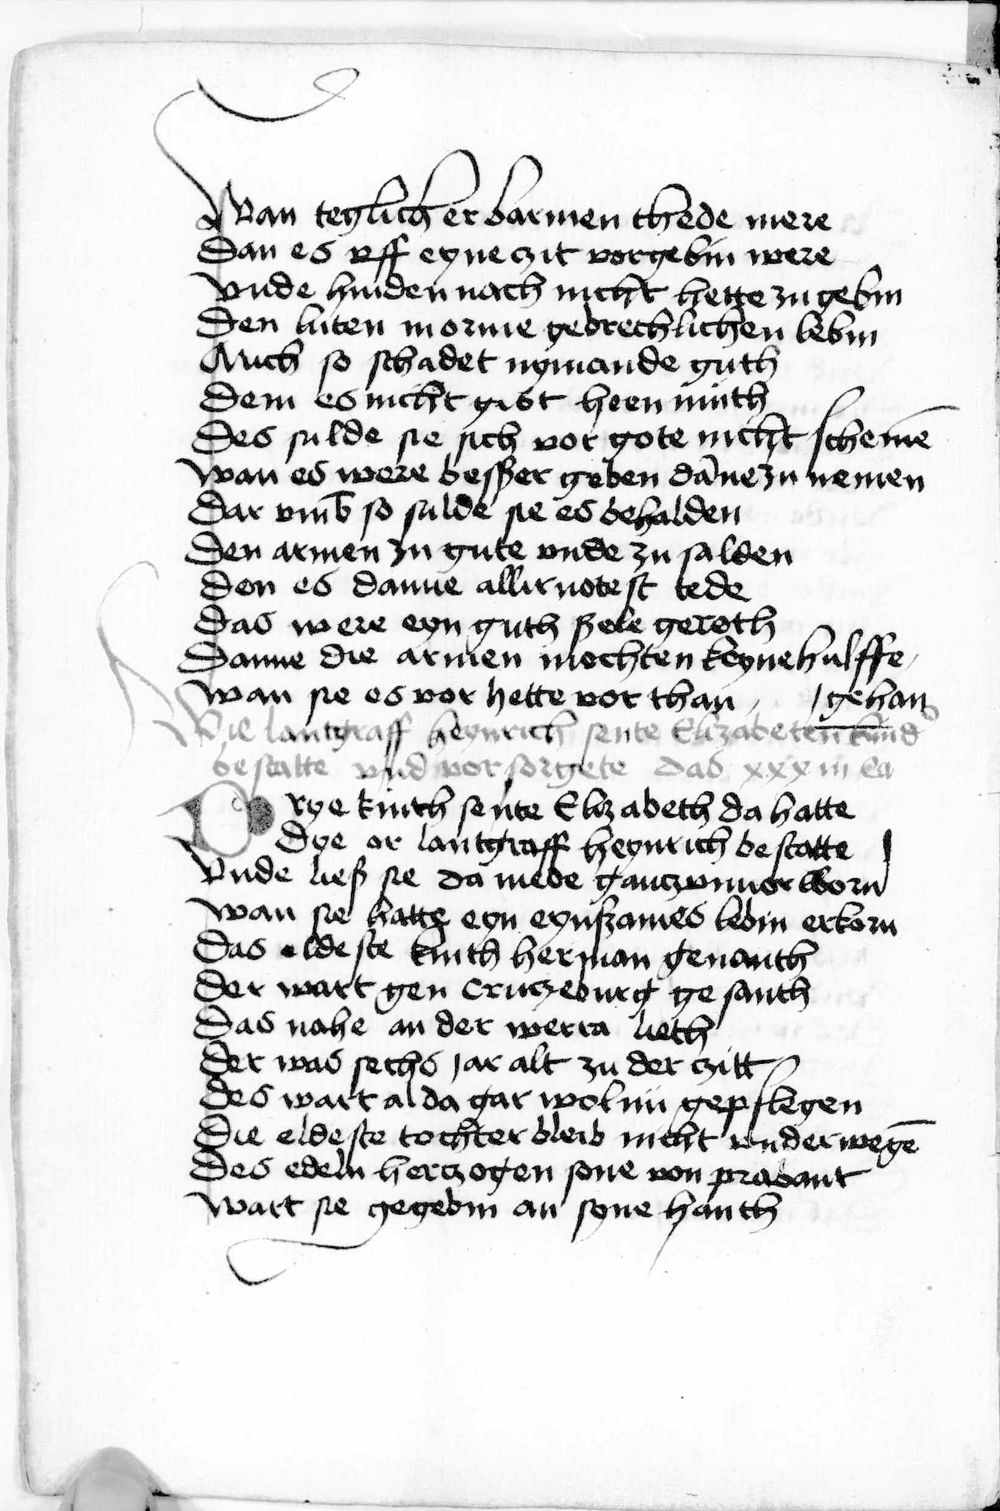 Wan teglich er barmen thede mere
Dan es vff eyne czit vorgebin were
Vnde hinden nach nicht hette zu gebin
Den luten in orme gebrechlichen lebin
Auch so schadet nymande guth
Dem es nicht gibt heen muth
Des sulde sie sich vor gote nicht scheme͞
wan es were beßer geben dan̄e zu nemen
Dar vmb so sulde sie es behalden
Den armen zu gute vnde zu salden
Den es danne allir notest tede
Das were eyn guth ßele gerethe
Danne die armen mochten keyne hulffe
wan sie es vor hette vor than / gehan
Wie lantgraff heynrich sente Elizabeten kind
bestatte vnd vorsorgete das xxxiii Ca
Drye kinth sente Elizabeth da hatte
Dye er lantgraff heynrich bestatte
Vnde ließ sie da mede gancz vnuorworn
wan sie hatte eyn eynßames lebin erkorn
Das eldeste kinth herman genanth
Der wart gen Cruczeburg gesanth
Das nahe an der werra lieth
Der was sechs Jar alt zu der czitt
Des wart alda gar wol in gepflegen
Die eldeste tochter bleib nicht vnderwege͞
Des edeln herczogen sone von prabant
Wart sie gegebin an syne hanth